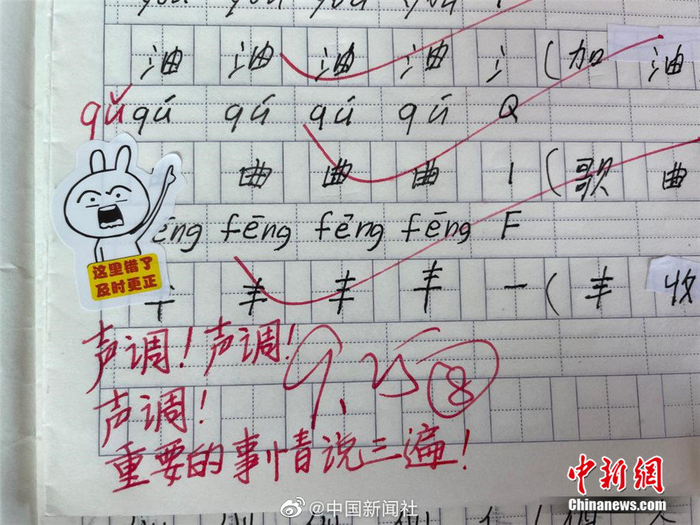 油 油 油 油 氵 ( 加 油
qǔ qú qú qú qú Q
曲 曲 曲 丨 ( 歌 曲
ēng fēng fēng fēng F
丰 丰 丰 丰 一 ( 丰 收
这里错了
及时更正
声调！声调！
声调！
9.25 ⑧
重要的事情说三遍！
@中国新闻社
中新网
Chinanews.com